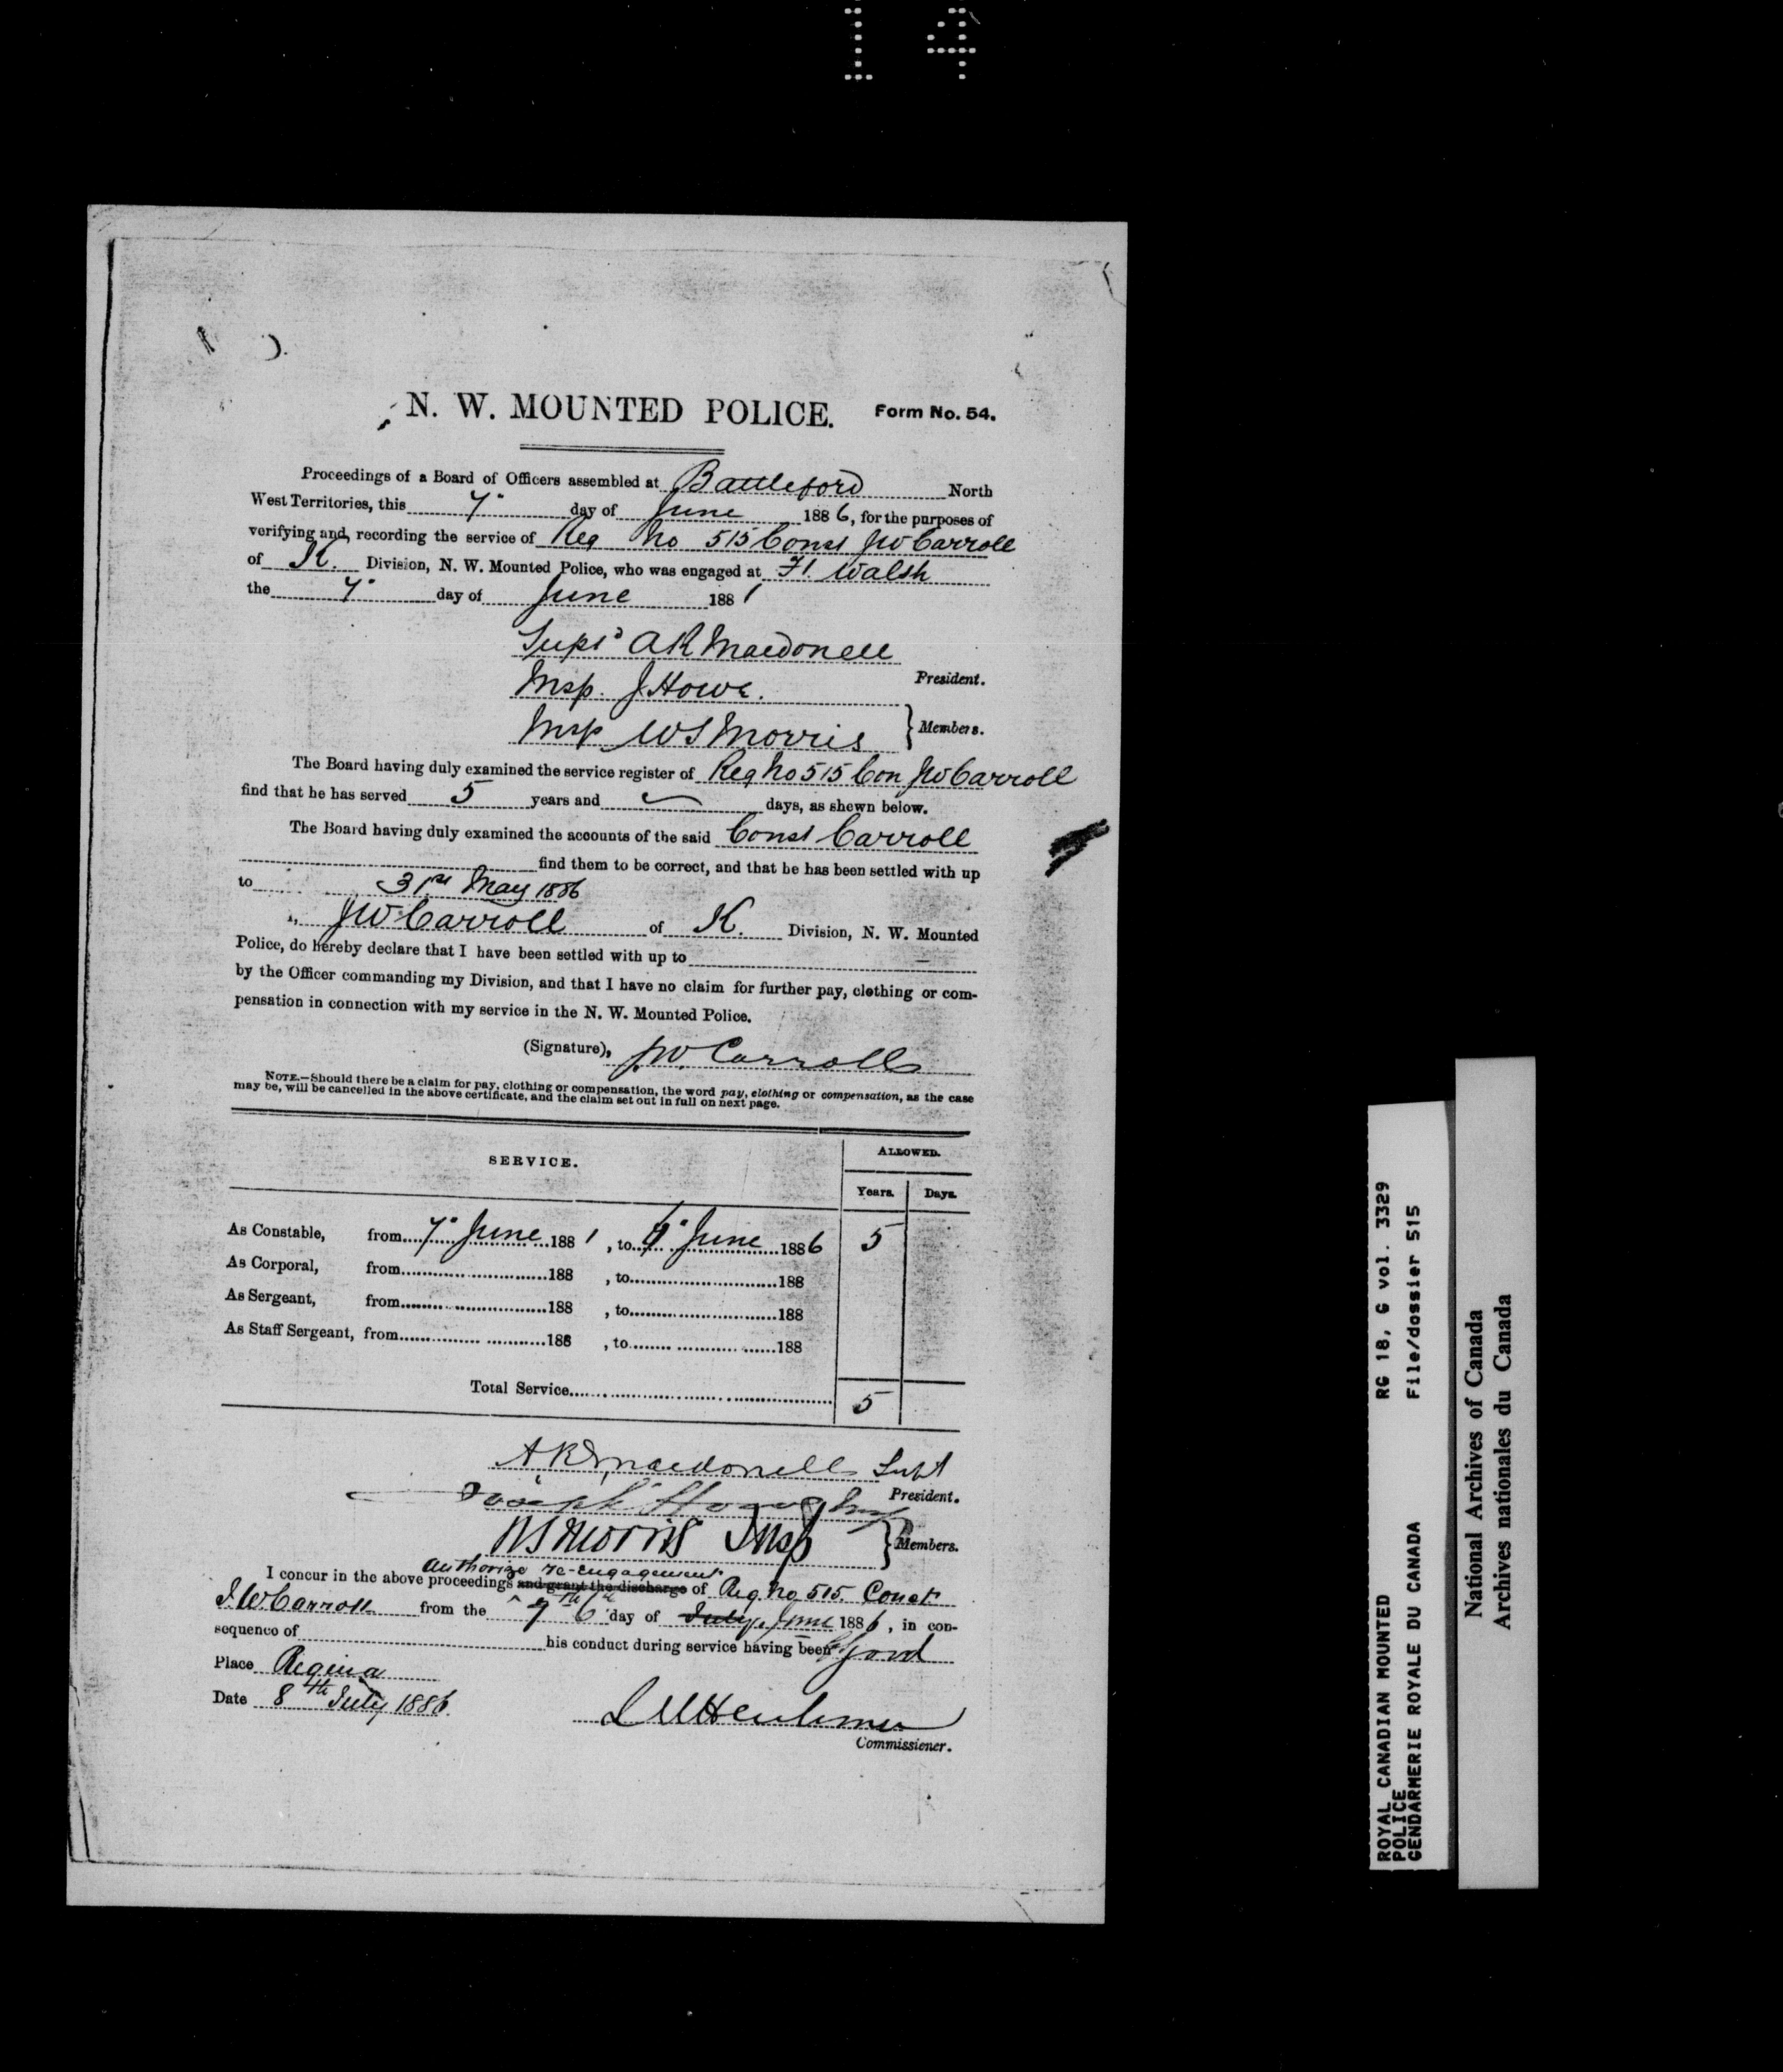 14
N. W. MOUNTED POLICE. Form No. 54.
Proceedings of a Board of Officers assembled at Battleford North
West Territories, this 7" day of June 1886, for the purposes of
verifying and recording the service of Reg No 515 Const JW Carroll
of K. Division, N. W. Mounted Police, who was engaged at Ft. Walsh
the 7" day of June 1881
Supt A R Macdonell
President.
Insp. J Howe.
Insp W S Morris } Members.
The Board having duly examined the service register of Reg No 515 Con JW Carroll
find that he has served 5 years and — days, as shewn below.
The Board having duly examined the accounts of the said Const Carroll
find them to be correct, and that he has been settled with up
to 31st May 1886
I, JW Carroll of K. Division, N. W. Mounted
Police, do hereby declare that I have been settled with up to —
by the Officer commanding my Division, and that I have no claim for further pay, clothing or com-
pensation in connection with my service in the N. W. Mounted Police.
(Signature), JW. Carroll
NOTE.—Should there be a claim for pay, clothing or compensation, the word pay, clothing or compensation, as the case
may be, will be cancelled in the above certificate, and the claim set out in full on next page.
SERVICE. ALLOWED.
Years. Days.
As Constable, from 7" June 1881, to June 1886 5
As Corporal, from 188 , to 188
As Sergeant, from 188 , to 188
As Staff Sergeant, from 188 , to 188
Total Service 5
A R Macdonell Supt
President.
Joseph Howe Insp
W S Morris Insp } Members.
authorize re-engagement
I concur in the above proceedings and grant the discharge of Reg. No. 515. Const
J. W. Carroll from the 7th day of July June 1886, in con-
sequence of his conduct during service having been Good
Place Regina
Date 8th July 1886.
Commissioner.
ROYAL CANADIAN MOUNTED RG 18, G vol. 3329
POLICE
GENDARMERIE ROYALE DU CANADA File/dossier 515
National Archives of Canada
Archives nationales du Canada